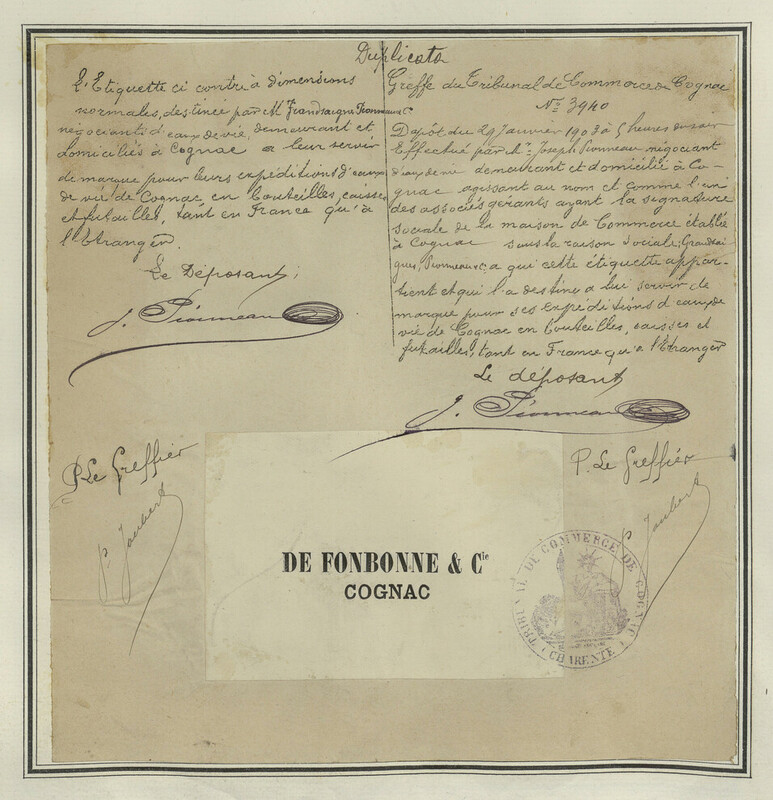 Duplicata
L'Etiquette ci contre à dimensions
normales, destinée par M
négociants d'eau de vie, demeurant et
domiciliés à Cognac a leur servir
de marque pour leurs expéditions d'eaux
de vie de Cognac, en bouteilles, caisses
et futailles, tant en France qu'à
l'Etranger.
Le Déposant;
J. Pionneau
P. Le Greffier
P. Joubert
Greffe du Tribunal de Commerce de Cognac
No. 3940
Dépôt du 29 Janvier 1903 à 5 heures du soir
Effectué par Mr. Joseph Pionneau négociant
d'eau de vie demeurant et domicilié à Co-
gnac agissant au nom et comme l'un
des associés gérants ayant la signature
sociale de la maison de Commerce établie
à Cognac sous la raison sociale; Grandsai-
gnes, Pionneau & Ce. a qui cette étiquette appar-
tient et qui l'a destiné a lui servir de
marque pour ses expéditions d'eaux de
vie de Cognac en bouteilles, caisses et
futailles, tant en France qu'a l'Etranger
Le déposant
J. Pionneau
P. Le Greffier
P. Joubert
DE FONBONNE & Cie
COGNAC
TRIBUNAL DE COMMERCE DE COGNAC
(CHARENTE)